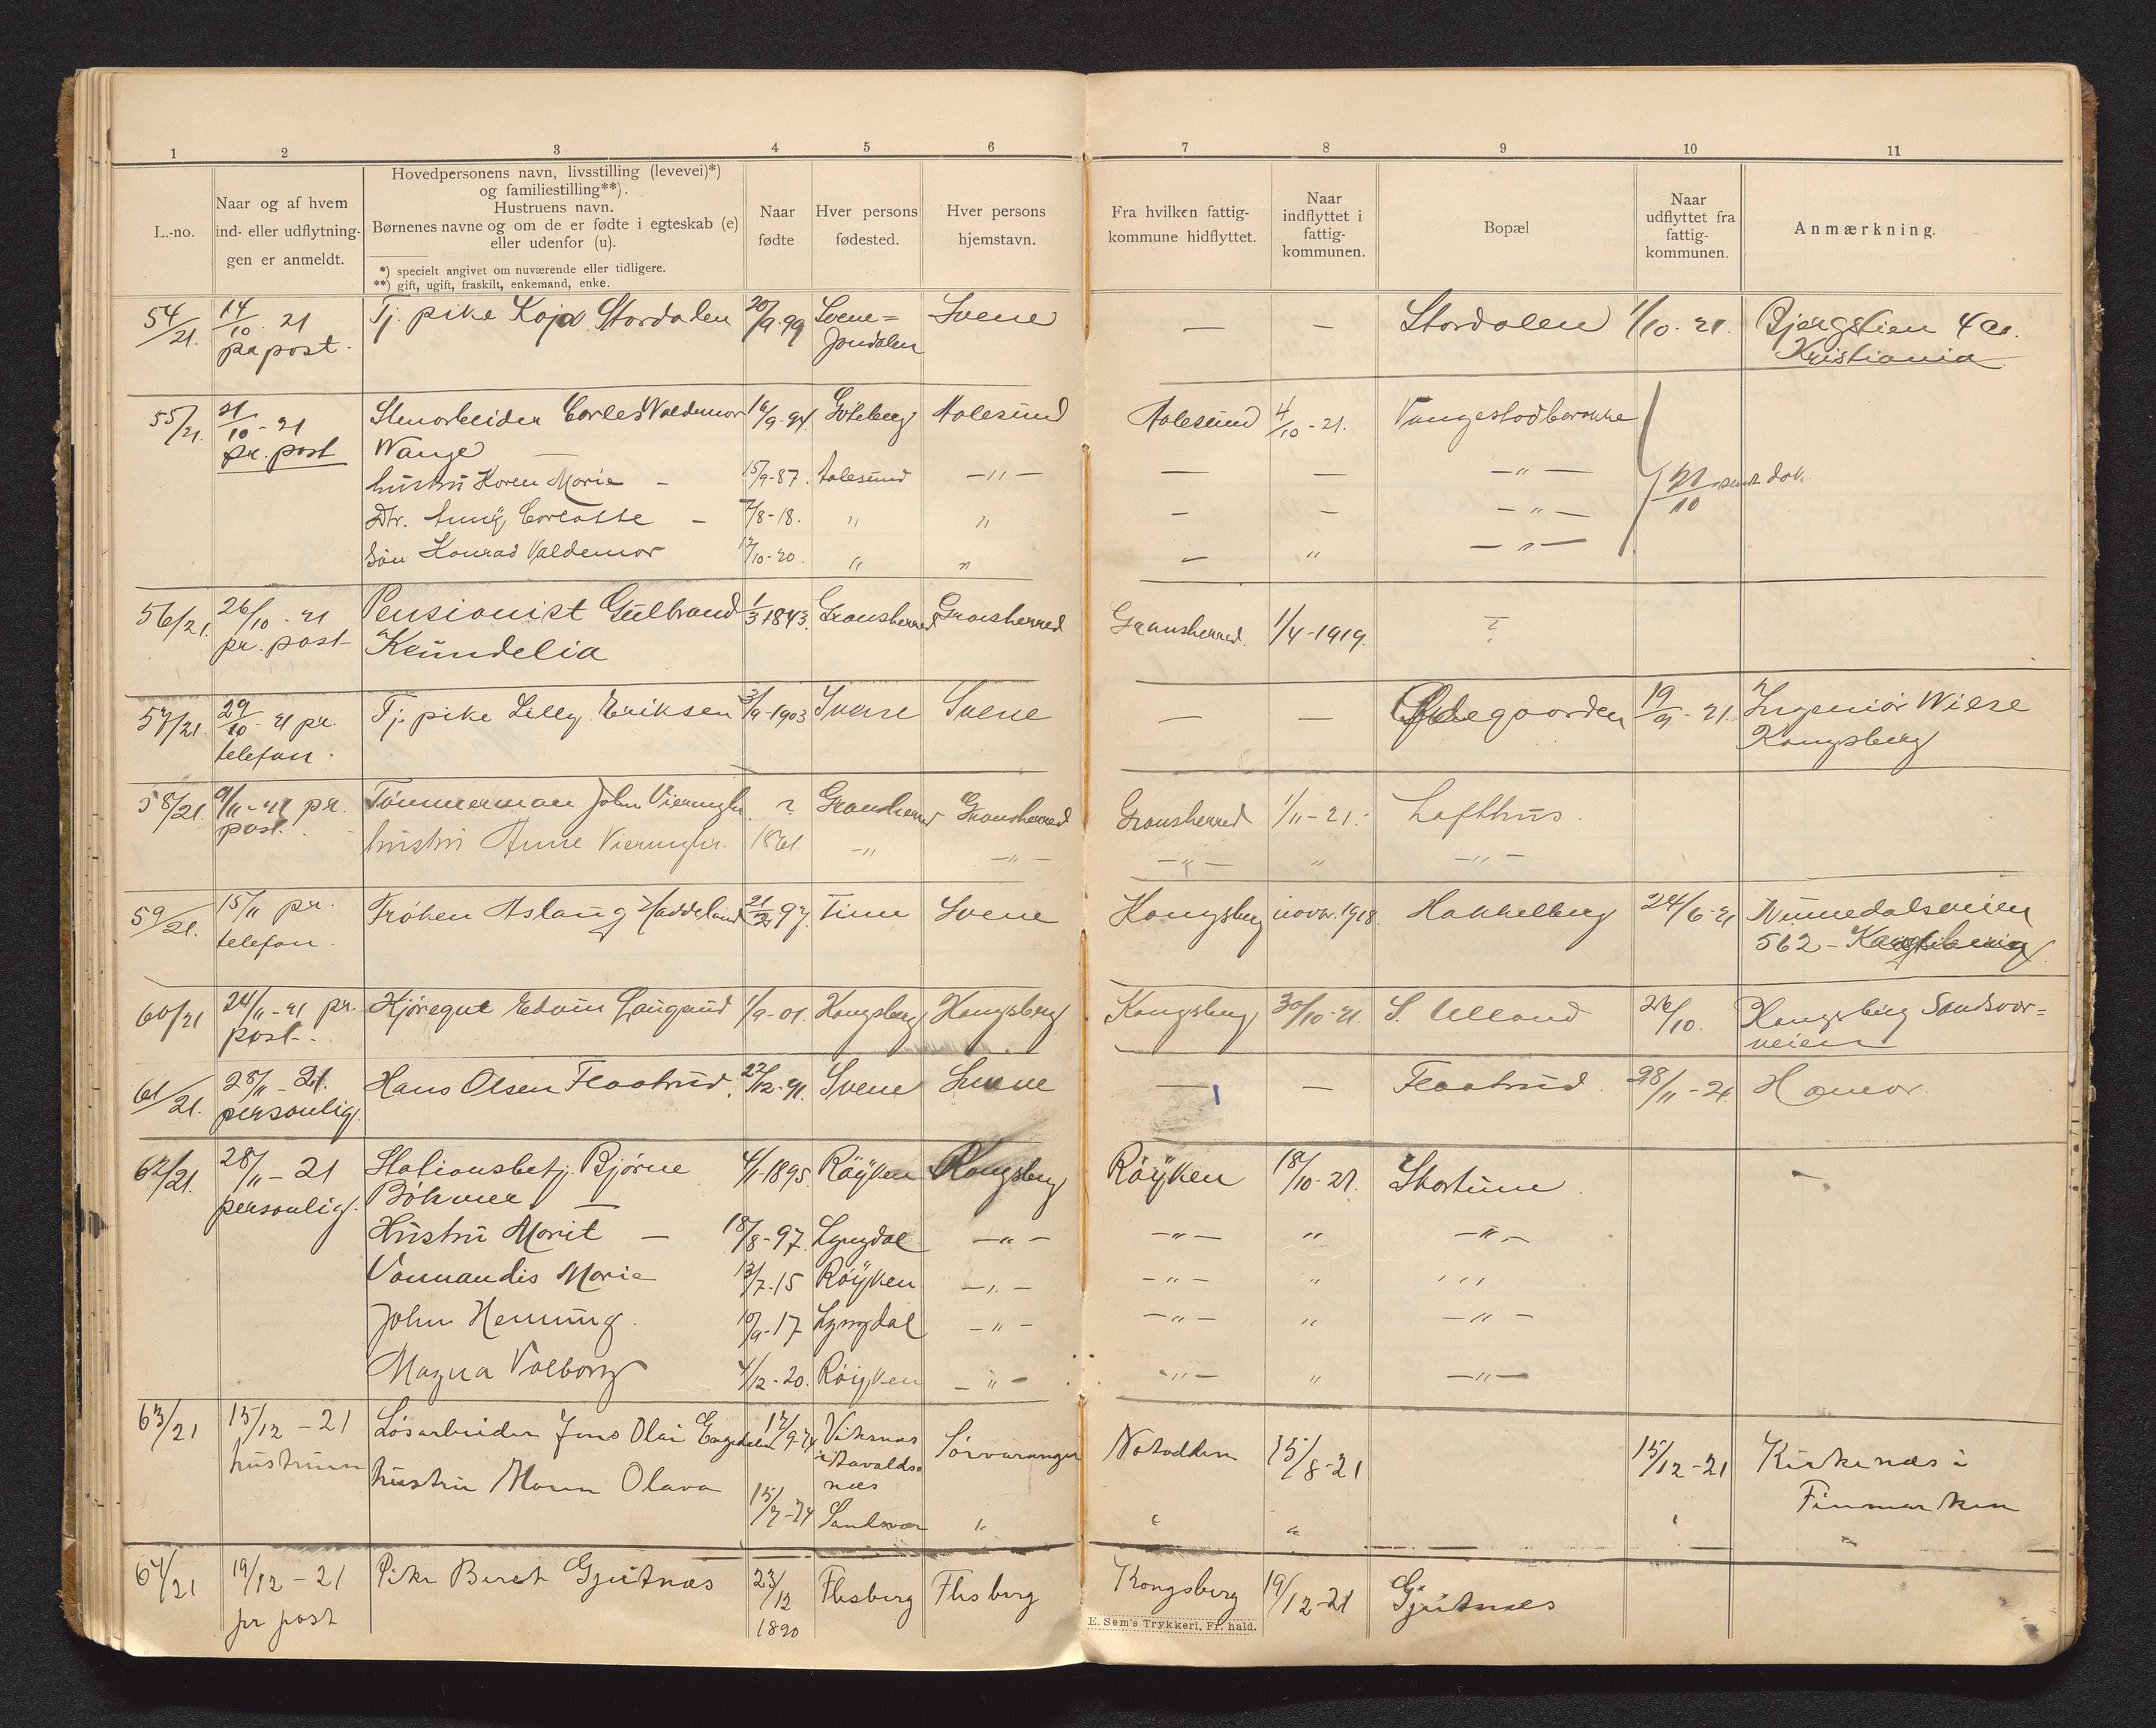 1 2 3 4 5 6 7 8 9 10 11
L.-no.
Naar og af hvem
ind- eller udflytnin-
gen er anmeldt.
Hovedpersonens navn, livsstilling (levevei)*)
og familiestilling**).
Hustruens navn.
Børnenes navne og om de er fødte i egteskab (e)
eller udenfor (u).
*) specielt angivet om nuværende eller tidligere.
**) gift, ugift, fraskilt, enkemand, enke.
Naar
fødte
Hver persons
fødested.
Hver persons
hjemstavn.
Fra hvilken fattig-
kommune hidflyttet.
Naar
indflyttet i
fattig-
kommunen.
Bopæl
Naar
udflyttet fra
fattig-
kommunen.
Anmærkning.
54/21. 14/10. 21 Tj. pike Kaja Stordalen 20/9.99 Svene= Svene — — Stordalen 1/10-21. Bjergstien 4 a.
pr post. Jondalen Kristiania
55/21. 21/10-21 Stenarbeider Carles Valdemar 16/9-94. Göteberg Aalesund Aalesund 4/10-21. Vangestadbarakke
pr. post Wange —
hustru Karen Marie — 15/9-87. Aalesund —"— — — —"— 21/10 sendt dok.
Dtr. Anny Carlotte — 7/8-18. " " — — —"—
Søn Konrad Valdemar 12/10-20. " " — " —"—
56/21. 26/10-21 Pensionist Gulbrand 1/3 1843. Gransherred Gransherred Gransherred. 1/4-1919. ?
pr. post Kaundelia
57/21. 29/10-21 pr. Tj. pike Lilly Eriksen 3/9-1903 Svene Svene — — Ødegaarden 19/9-21. Ingeniør Wiese
telefon. Kongsberg
58/21. 9/11-21 pr. Tømmerman John ? Gransherred Gransherred Gransherred 1/11-21. Lofthus.
post. hustru Anne 1861. —" —"— —"— " —"—
59/21. 15/11 pr. Frøken Aslaug Haddeland 21/2 97. Tinn Svene Kongsberg novbr. 1918. Hakkelberg 24/6-21 Numedalsveien
telefon. 562 - Kongsberg
60/21 24/11-21 pr. Kjøregut Edvin Haugerud 1/9-01. Kongsberg Kongsberg Kongsberg 30/10-21. S. Ulland 26/10. Kongsberg Sandsvær=
post. veien
61/21. 28/11-21. Hans Olsen Flaatrud. 22/12-91. Svene Svene — — Flaatrud. 28/11-21 Hamar.
personlig.
62/21. 28/11-21 Stationsbetj. Bjørne 4/11-1895. Røyken Kongsberg Røyken 18/10-21. Skortune. —
personlig. Böhmer —
Hustru Marit — 18/8-97. Lyngdal —"— —"— " —"—
Vonnandis Marie 13/7-15 Røyken —"— —"— " "
John Henning. 10/9-17 Lyngdal —"— —"— " —"—
Magna Valborg 4/12-20. Røyken —"— —"— " —"—
63/21 15/12-21 Løsarbeider Jens Olai Engedalen 12/9-74 Viksnæs Sørvaranger Notodden 15/8-21 15/12-21 Kirkenæs i
hustruen i Avalds- Finmarken
hustru Maren Olava næs
15/7-74 Sandsvær " " " " "
64/21 19/12-21 Pike Beret Gjutnæs 23/12 Flesberg Flesberg Kongsberg 19/12-21 Gjutnæs
pr post 1890
E. Sem's Trykkeri, Fr.hald.